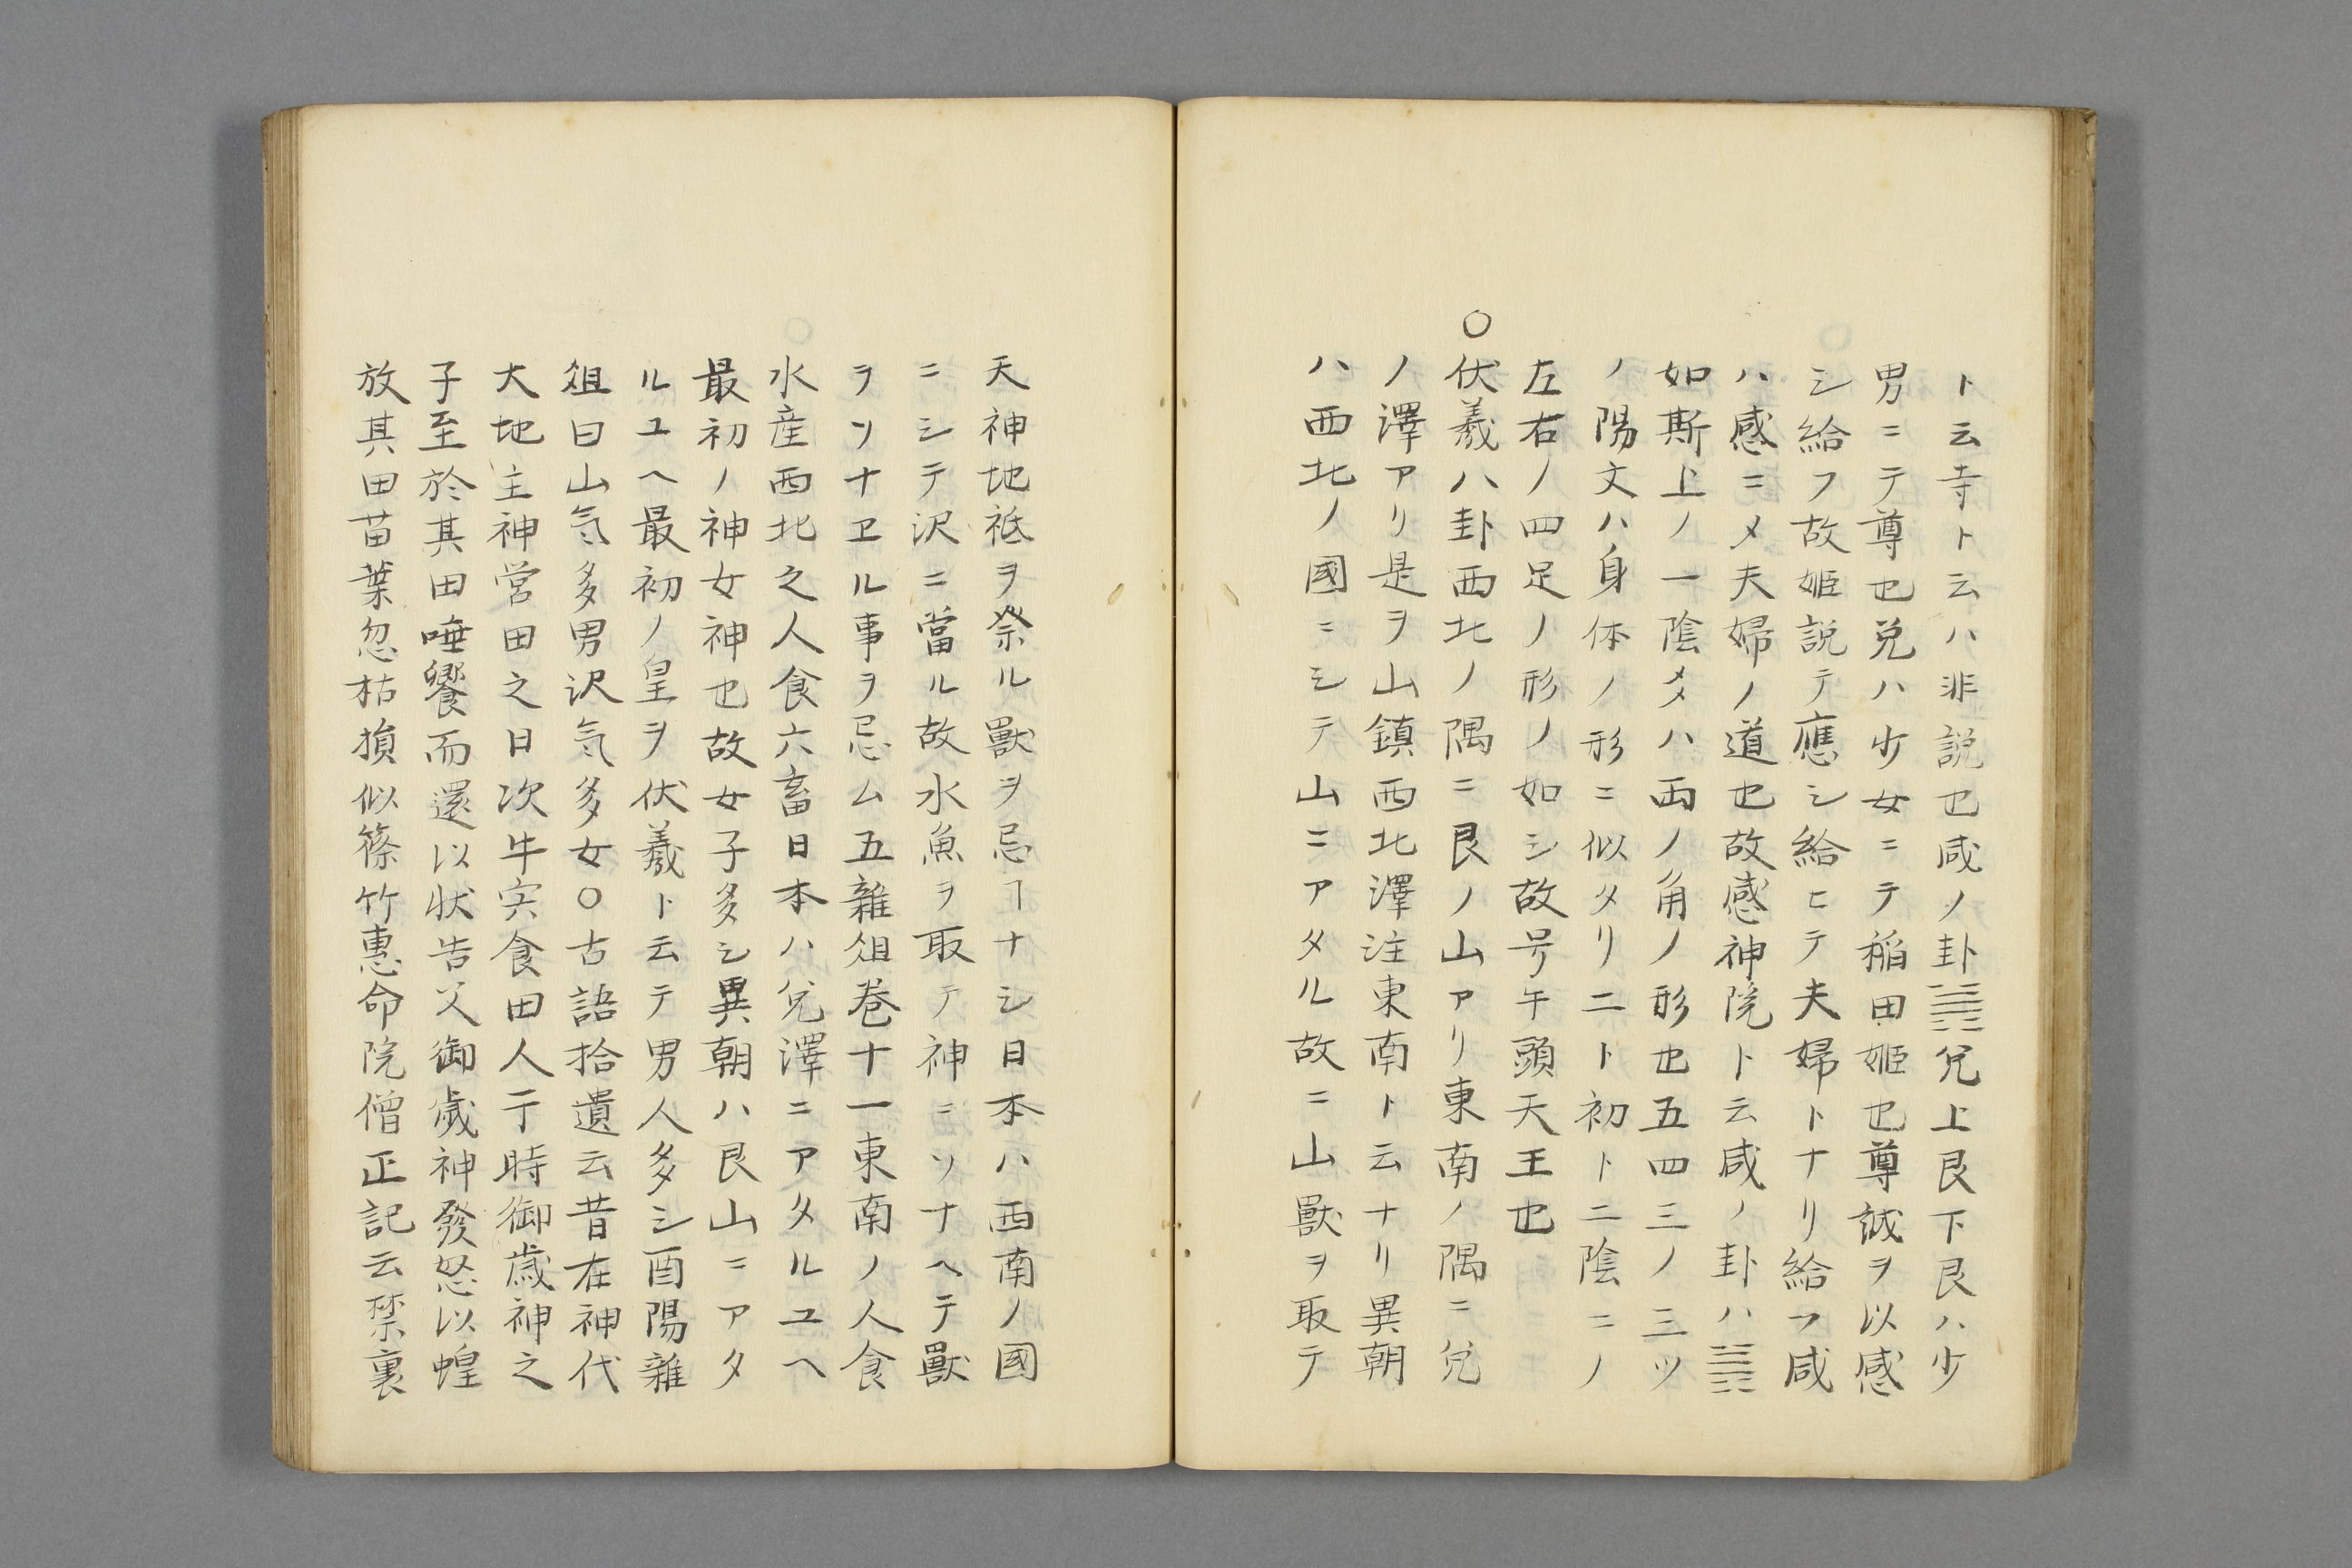 ト云寺ト云ハ非説也咸ノ卦䷞兌上艮下艮ハ少
男ニテ尊也兌ハ少女ニテ稲田姫也尊誠ヲ以感
シ給フ故姫説テ應シ給ヒテ夫婦トナリ給フ咸
ハ感ニメ夫婦ノ道也故感神院ト云咸ノ卦ハ䷞
如斯上ノ一陰メハ両ノ角ノ形也五四三ノ三ツ
ノ陽文ハ身体ノ形ニ似タリ二ト初ト二陰ニノ
左右ノ四足ノ形ノ如シ故号牛頭天王也
〇伏羲ハ卦西北ノ隅ニ艮ノ山アリ東南ノ隅ニ兌
ノ澤アリ是ヲ山鎮西北澤注東南ト云ナリ異朝
ハ西北ノ國ニシテ山ニアタル故ニ山獸ヲ取テ
天神地祗ヲ祭ル獸ヲ忌ヿナシ日本ハ西南ノ國
ニシテ沢ニ當ル故水魚ヲ取テ神ニソナヘテ獸
ヲソナヱル事ヲ忌ム五雜俎巻十一東南ノ人食
水産西北之人食六畜日本ハ兌澤ニアタルユヘ
最初ノ神女神也故女子多シ異朝ハ艮山ニアタ
ルユヘ最初ノ皇ヲ伏羲ト云テ男人多シ酉陽雜
俎曰山氣多男沢氣多女〇古語拾遺云昔在神代
大地主神営田之日次牛宍食田人于時御歳神之
子至於其田唾饗而還以状告父御歳神發怒以蝗
放其田苗葉忽枯損似篠竹惠命院僧正記云禁裏